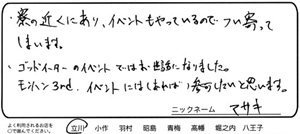 ・寮の近くにあり、イベントもやっているのでつい寄って
しまいます。
・ゴッドイーターのイベントではお世話になりました。
モンハン3rd.イベントにはしあれば参加したいと思います。
ニックネーム マサキ
よく利用されるお店を
○で囲んでください。
立川 小作 羽村 昭島 青梅 高幡 堀之内 八王子